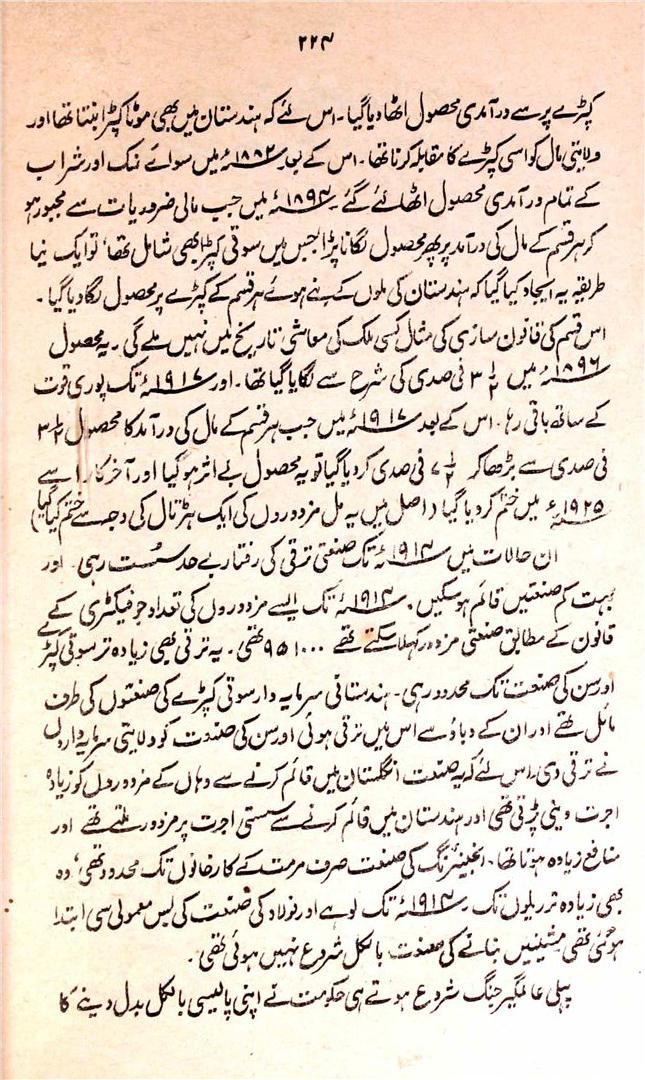 ۲۲۴
کپڑے پر سے درآمدی محصول اٹھا دیا گیا۔ اس لئے کہ ہندستان میں بھی موٹا کپڑا بنتا تھا اور
ولایتی مال کو اسی کپڑے کا مقابلہ کرنا تھا۔ اس کے بعد ۱۸۸۲ء میں سوائے نمک اور شراب
کے تمام درآمدی محصول اٹھائے گئے۔ ۱۸۹۴ء میں جب مالی ضروریات سے مجبور ہو
کر ہر قسم کے مال کی درآمد پر پھر محصول لگانا پڑا جس میں سوتی کپڑا بھی شامل تھا، تو ایک نیا
طریقہ یہ ایجاد کیا گیا کہ ہندستان کی ملوں کے بنے ہوئے ہر قسم کے کپڑے پر محصول لگا دیا گیا۔
اس قسم کی قانون سازی کی مثال کسی ملک کی معاشی تاریخ میں نہیں ملے گی۔ یہ محصول
۱۸۹۶ء میں ۳ ۱/۲ فی صدی کی شرح سے لگایا گیا تھا۔ اور ۱۹۱۷ء تک پوری قوت
کے ساتھ باقی رہا۔ اس کے بعد ۱۹۱۷ء میں جب ہر قسم کے مال کی درآمد کا محصول ۳ ۱/۲
فی صدی سے بڑھا کر ۷ ۱/۲ فی صدی کر دیا گیا تو یہ محصول بے اثر ہو گیا اور آخر کار اسے
۱۹۲۵ء میں ختم کر دیا گیا (اصل میں یہ مل مزدوروں کی ایک ہڑتال کی وجہ سے ختم کیا گیا)
ان حالات میں ۱۹۱۴ء تک صنعتی ترقی کی رفتار بے حد سُست رہی۔ اور
بہت کم صنعتیں قائم ہو سکیں۔ ۱۹۱۴ء تک ایسے مزدوروں کی تعداد جو فیکٹری کے
قانون کے مطابق صنعتی مزدور کہلا سکتے تھے ۹۵۱۰۰۰ تھی۔ یہ ترقی بھی زیادہ تر سوتی کپڑے
اور سن کی صنعت تک محدود رہی۔ ہندستانی سرمایہ دار سوتی کپڑے کی صنعتوں کی طرف
مائل تھے اور ان کے دباؤ سے اس میں ترقی ہوئی اور سن کی صنعت کو ولایتی سرمایہ داروں
نے ترقی دی۔ اس لئے کہ یہ صنعت انگلستان میں قائم کرنے سے وہاں کے مزدوروں کو زیادہ
اجرت دینی پڑتی تھی اور ہندستان میں قائم کرنے سے سستی اجرت پر مزدور ملتے تھے اور
منافع زیادہ ہوتا تھا۔ انجینیرنگ کی صنعت صرف مرمت کے کارخانوں تک محدود تھی، وہ
بھی زیادہ تر ریلوں تک۔ ۱۹۱۴ء تک لوہے اور فولاد کی صنعت کی بس معمولی سی ابتدا
ہو گئی تھی مشینیں بنانے کی صنعت بالکل شروع نہیں ہوئی تھی۔
پہلی عالمگیر جنگ شروع ہوتے ہی حکومت نے اپنی پالیسی بالکل بدل دینے کا